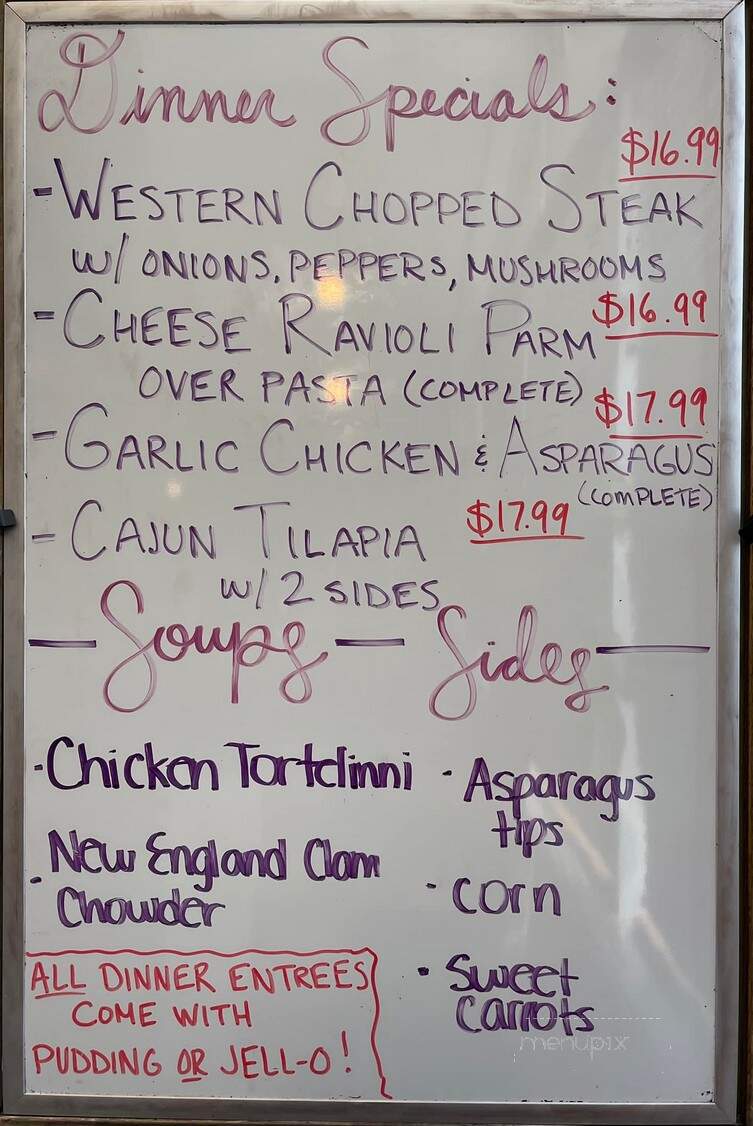 Dinner Specials:
$16.99
- WESTERN CHOPPED STEAK
W/ ONIONS, PEPPERS, MUSHROOMS
- CHEESE RAVIOLI PARM $16.99
OVER PASTA (COMPLETE)
$17.99
- GARLIC CHICKEN & ASPARAGUS
(COMPLETE)
- CAJUN TILAPIA $17.99
W/ 2 SIDES
— Soups — Sides —
· Chicken Tortelinni
· New England Clam
Chowder
· Asparagus
tips
· corn
· Sweet
Carrots
ALL DINNER ENTREES
COME WITH
PUDDING OR JELL-O!
menupix